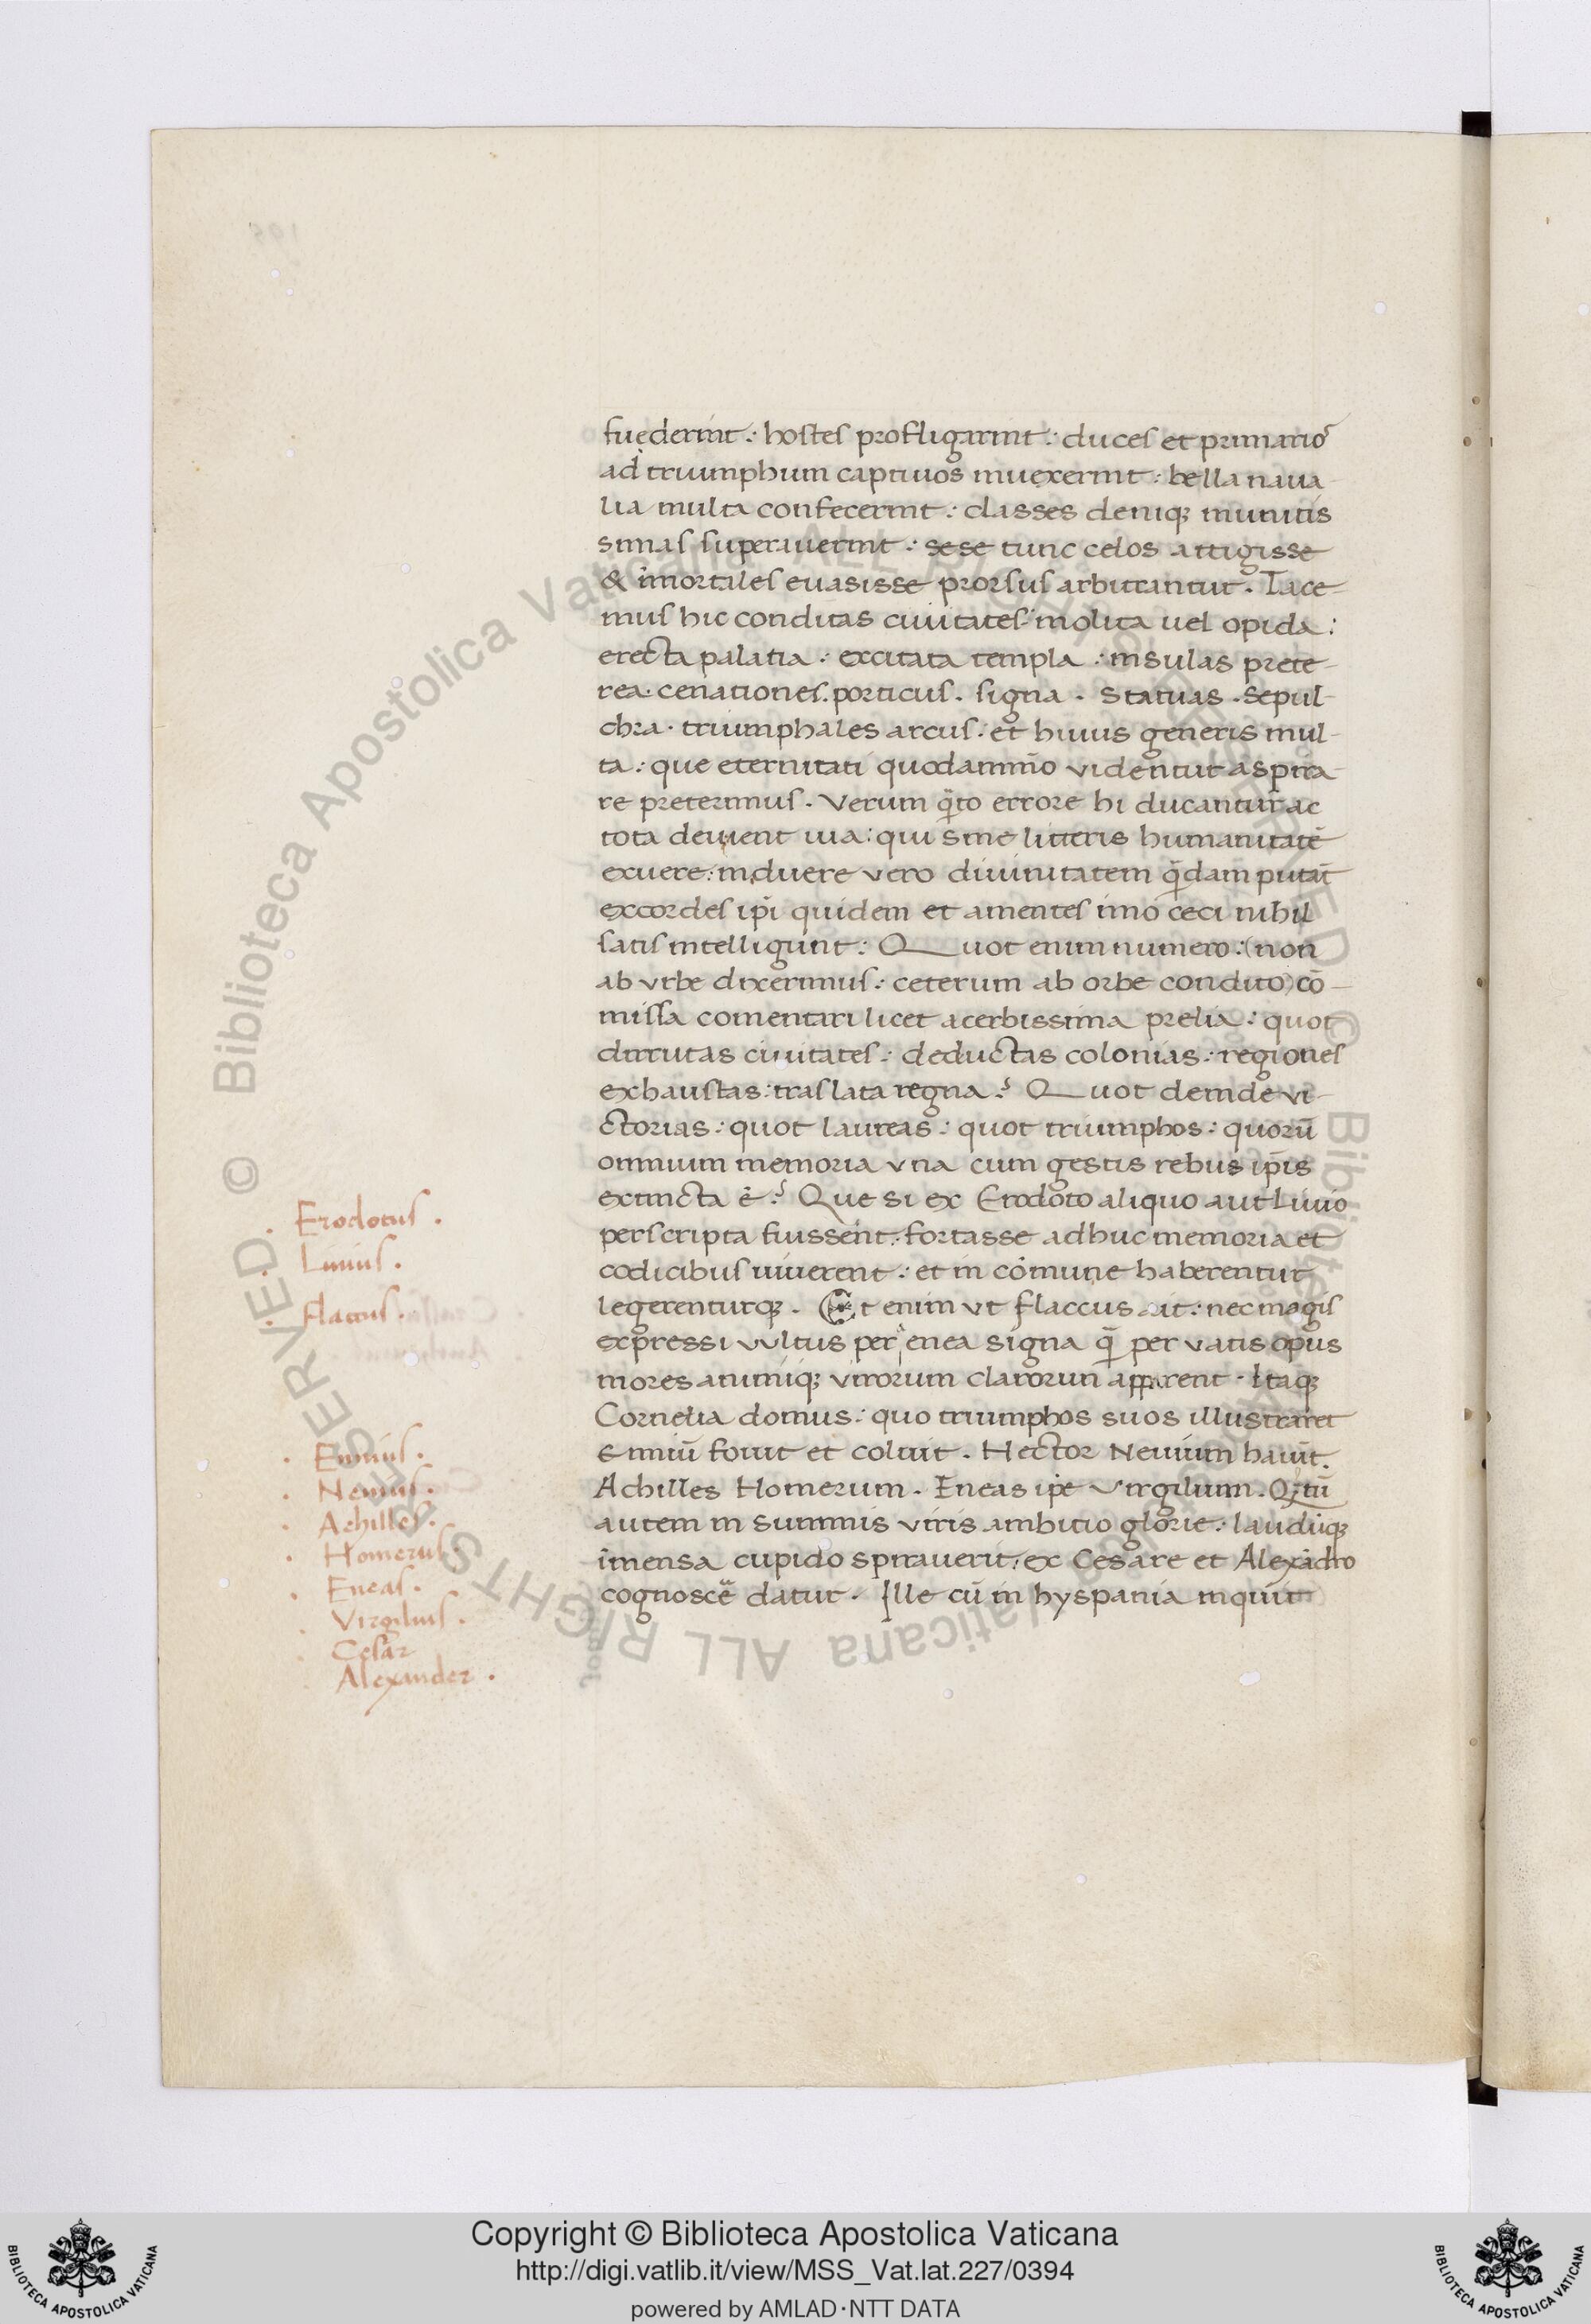 fuederint: hostes profligarint: duces et primarios
ad triumphum captiuos inuexerint: bella naua-
lia multa confecerint: classes deniq; munitis
simas superauerint: sese tunc celos attigisse
& īmortales euasisse prorsus arbitrantur. Tace-
mus hic conditas ciuitates: molita uel opida:
erecta palatia: excitata templa: insulas prete-
rea. cenationes. porticus. signa. statuas. sepul-
chra. triumphales arcus: et huius generis mul-
ta: que eternitati quodammō videntur aspira-
re preterimus. Verum q̄to errore hi ducantur ac
tota deuient uia: qui sine litteris humanitatē
exuere: induere vero diuinitatem q̄dam putāt
excordes ip̄i quidem et amentes imo ceci nihil
satis intelligunt: Quot enim numero: (non
ab vrbe dixerimus: ceterum ab orbe condito) cō-
missa comentari licet acerbissima prelia: quot
dirrutas ciuitates: deductas colonias: regiones
exhaustas: traslata regna? Quot deinde vi-
ctorias: quot laureas: quot triumphos: quorū
omnium memoria vna cum gestis rebus ip̄is
extincta ē? Que si ex Erodoto aliquo aut Liuio
perscripta fuissent: fortasse adhuc memoria et
codicibus uiuerent: et in cōmune haberentur
legerenturq;. Et enim vt flaccus ait: nec magis
expressi vultus per enea signa q̄ per vatis opus
mores animiq; virorum clarorun apparent. Itaq;
Cornelia domus: quo triumphos suos illustraret
Enniū fouit et coluit. Hector Neuium habuit.
Achilles Homerum. Eneas ip̄e Virgilium. Q̄tū
autem in summis viris ambitio glorie: laudūq;
īmensa cupido spirauerit: ex Cesare et Alexādro
cognoscē datur. Ille cū in hyspania inquit
. Erodotus .
. Liuius .
. flaccus .
. Ennius .
. Neuius .
. Achilles .
. Homerus .
. Eneas .
. Virgilius .
. Cesar
. Alexander .
© Biblioteca Apostolica Vaticana ALL RIGHTS RESERVED
© Biblioteca Apostolica Vaticana ALL RIGHTS RESERVED
Copyright © Biblioteca Apostolica Vaticana
http://digi.vatlib.it/view/MSS_Vat.lat.227/0394
powered by AMLAD·NTT DATA
BIBLIOTECA APOSTOLICA VATICANA
BIBLIOTECA APOSTOLICA VATICANA